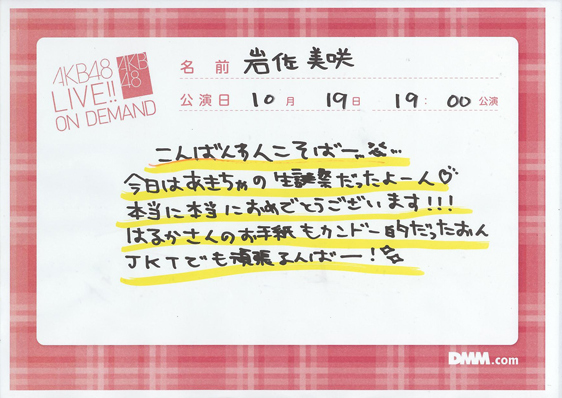 AKB48
LIVE!!
ON DEMAND
AKB
48
名前 岩佐美咲
公演日 10月 19日 19:00公演
こんばんわんこそばー
今日はあきちゃの生誕祭だったよーん♡
本当に本当におめでとうございます!!!
はるかさんのお手紙もカンドー的だったおん
JKTでも頑張るんばー!☆
DMM.com